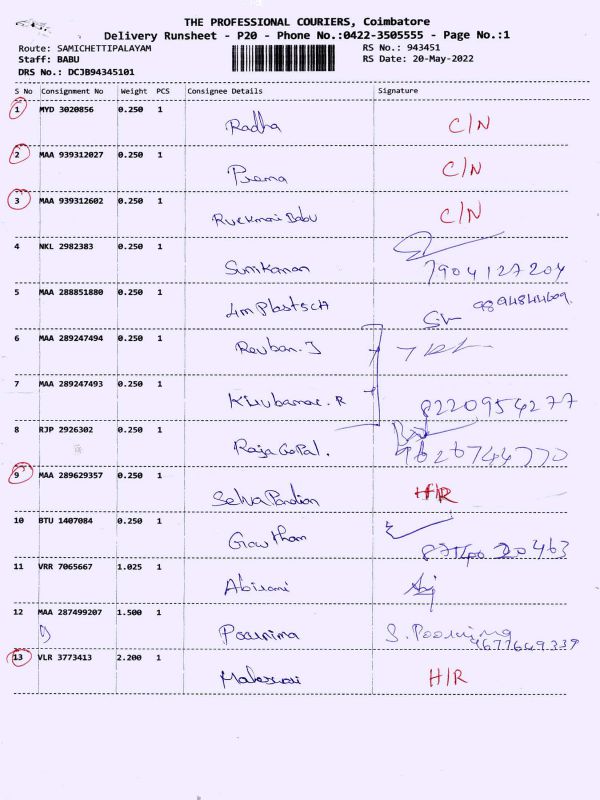 THE PROFESSIONAL COURIERS, Coimbatore
Delivery Runsheet - P20 - Phone No.:0422-3505555 - Page No.:1
Route: SAMICHETTIPALAYAM RS No.: 943451
Staff: BABU RS Date: 20-May-2022
DRS No.: DCJB94345101
S No Consignment No Weight PCS Consignee Details Signature
1 MYD 3020856 0.250 1
Radha C/N
2 MAA 939312027 0.250 1
Prema C/N
3 MAA 939312602 0.250 1
Rukmani Babu C/N
4 NKL 2982383 0.250 1
7904127204
5 MAA 288851880 0.250 1
9894844609
6 MAA 289247494 0.250 1
Reuban. J
7 MAA 289247493 0.250 1
R 8220954277
8 RJP 2926302 0.250 1
Raja Gopal. 9626744770
9 MAA 289629357 0.250 1
Selva Pandian H/R
10 BTU 1407084 0.250 1
Gowtham
11 VRR 7065667 1.025 1
Abirami
12 MAA 287499207 1.500 1
Poornima S. Poornima
9677649339
13 VLR 3773413 2.200 1
H/R